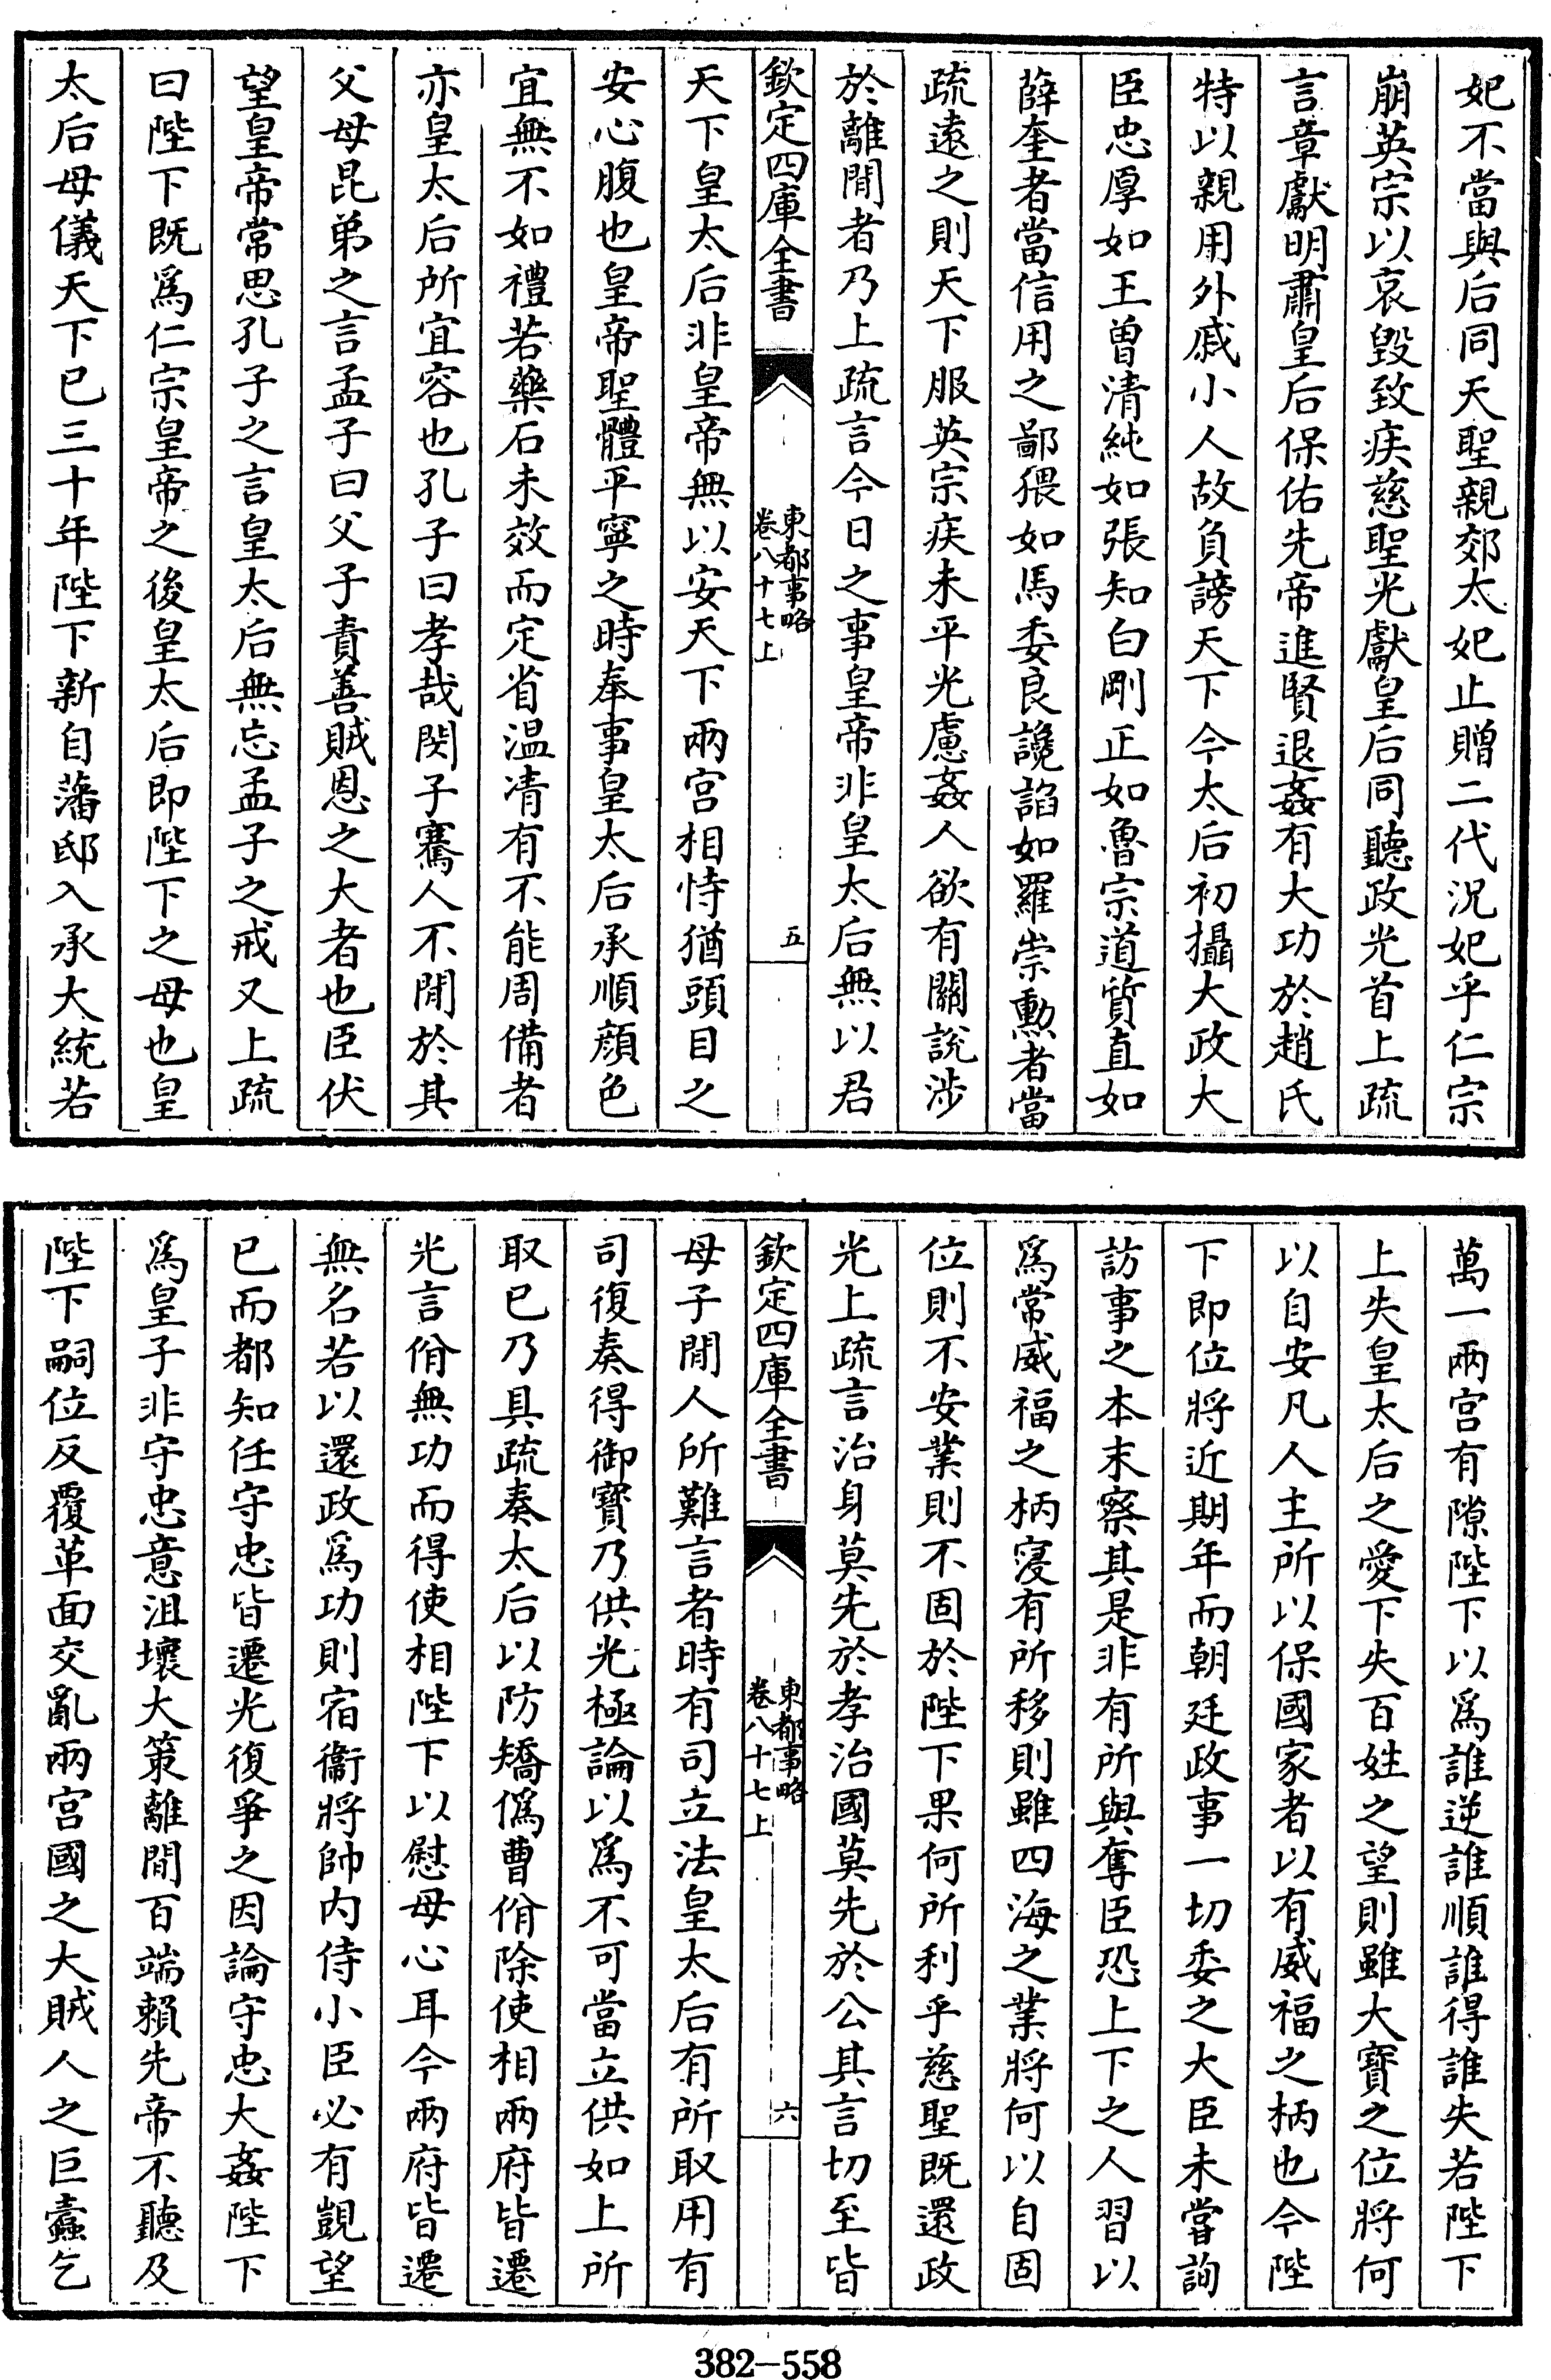 妃不當與后同天聖親郊太妃止贈二代況妃乎仁宗
崩英宗以哀毀致疾慈聖光獻皇后同聽政光首上疏
言章獻明肅皇后保佑先帝進賢退姦有大功於趙氏
特以親用外戚小人故負謗天下今太后初攝大政大
臣忠厚如王曽清純如張知白剛正如魯宗道質直如
薛奎者當信用之鄙猥如馬季良讒諂如羅崇勲者當
疏遠之則天下服英宗疾未平光慮姦人欲有關說涉
於離間者乃上疏言今日之事皇帝非皇太后無以君
欽定四庫全書
東都事略
卷八十七上
五
天下皇太后非皇帝無以安天下兩宫相恃猶頭目之
安心腹也皇帝聖體平寧之時奉事皇太后承順顔色
宜無不如禮若藥石未效而定省温凊有不能周備者
亦皇太后所宜容也孔子曰孝哉閔子騫人不間於其
父母昆弟之言孟子曰父子責善賊恩之大者也臣伏
望皇帝常思孔子之言皇太后無忘孟子之戒又上疏
曰陛下既為仁宗皇帝之後皇太后即陛下之母也皇
太后母儀天下已三十年陛下新自藩邸入承大統若
萬一兩宫有隙陛下以為誰逆誰順誰得誰失若陛下
上失皇太后之愛下失百姓之望則雖大寶之位將何
以自安凡人主所以保國家者以有威福之柄也今陛
下即位將近期年而朝廷政事一切委之大臣未嘗詢
訪事之本末察其是非有所與奪臣恐上下之人習以
為常威福之柄寖有所移則雖四海之業將何以自固
位則不安業則不固於陛下果何所利乎慈聖既還政
光上疏言治身莫先於孝治國莫先於公其言切至皆
欽定四庫全書
東都事略
卷八十七上
六
母子間人所難言者時有司立法皇太后有所取用有
司復奏得御寶乃供光極論以為不可當立供如上所
取已乃具疏奏太后以防矯偽曹佾除使相兩府皆遷
光言佾無功而得使相陛下以慰母心耳今兩府皆遷
無名若以還政為功則宿衞將帥内侍小臣必有覬望
已而都知任守忠皆遷光復爭之因論守忠大姦陛下
為皇子非守忠意沮壞大策離間百端賴先帝不聽及
陛下嗣位反覆革面交亂兩宫國之大賊人之巨蠹乞
382-558